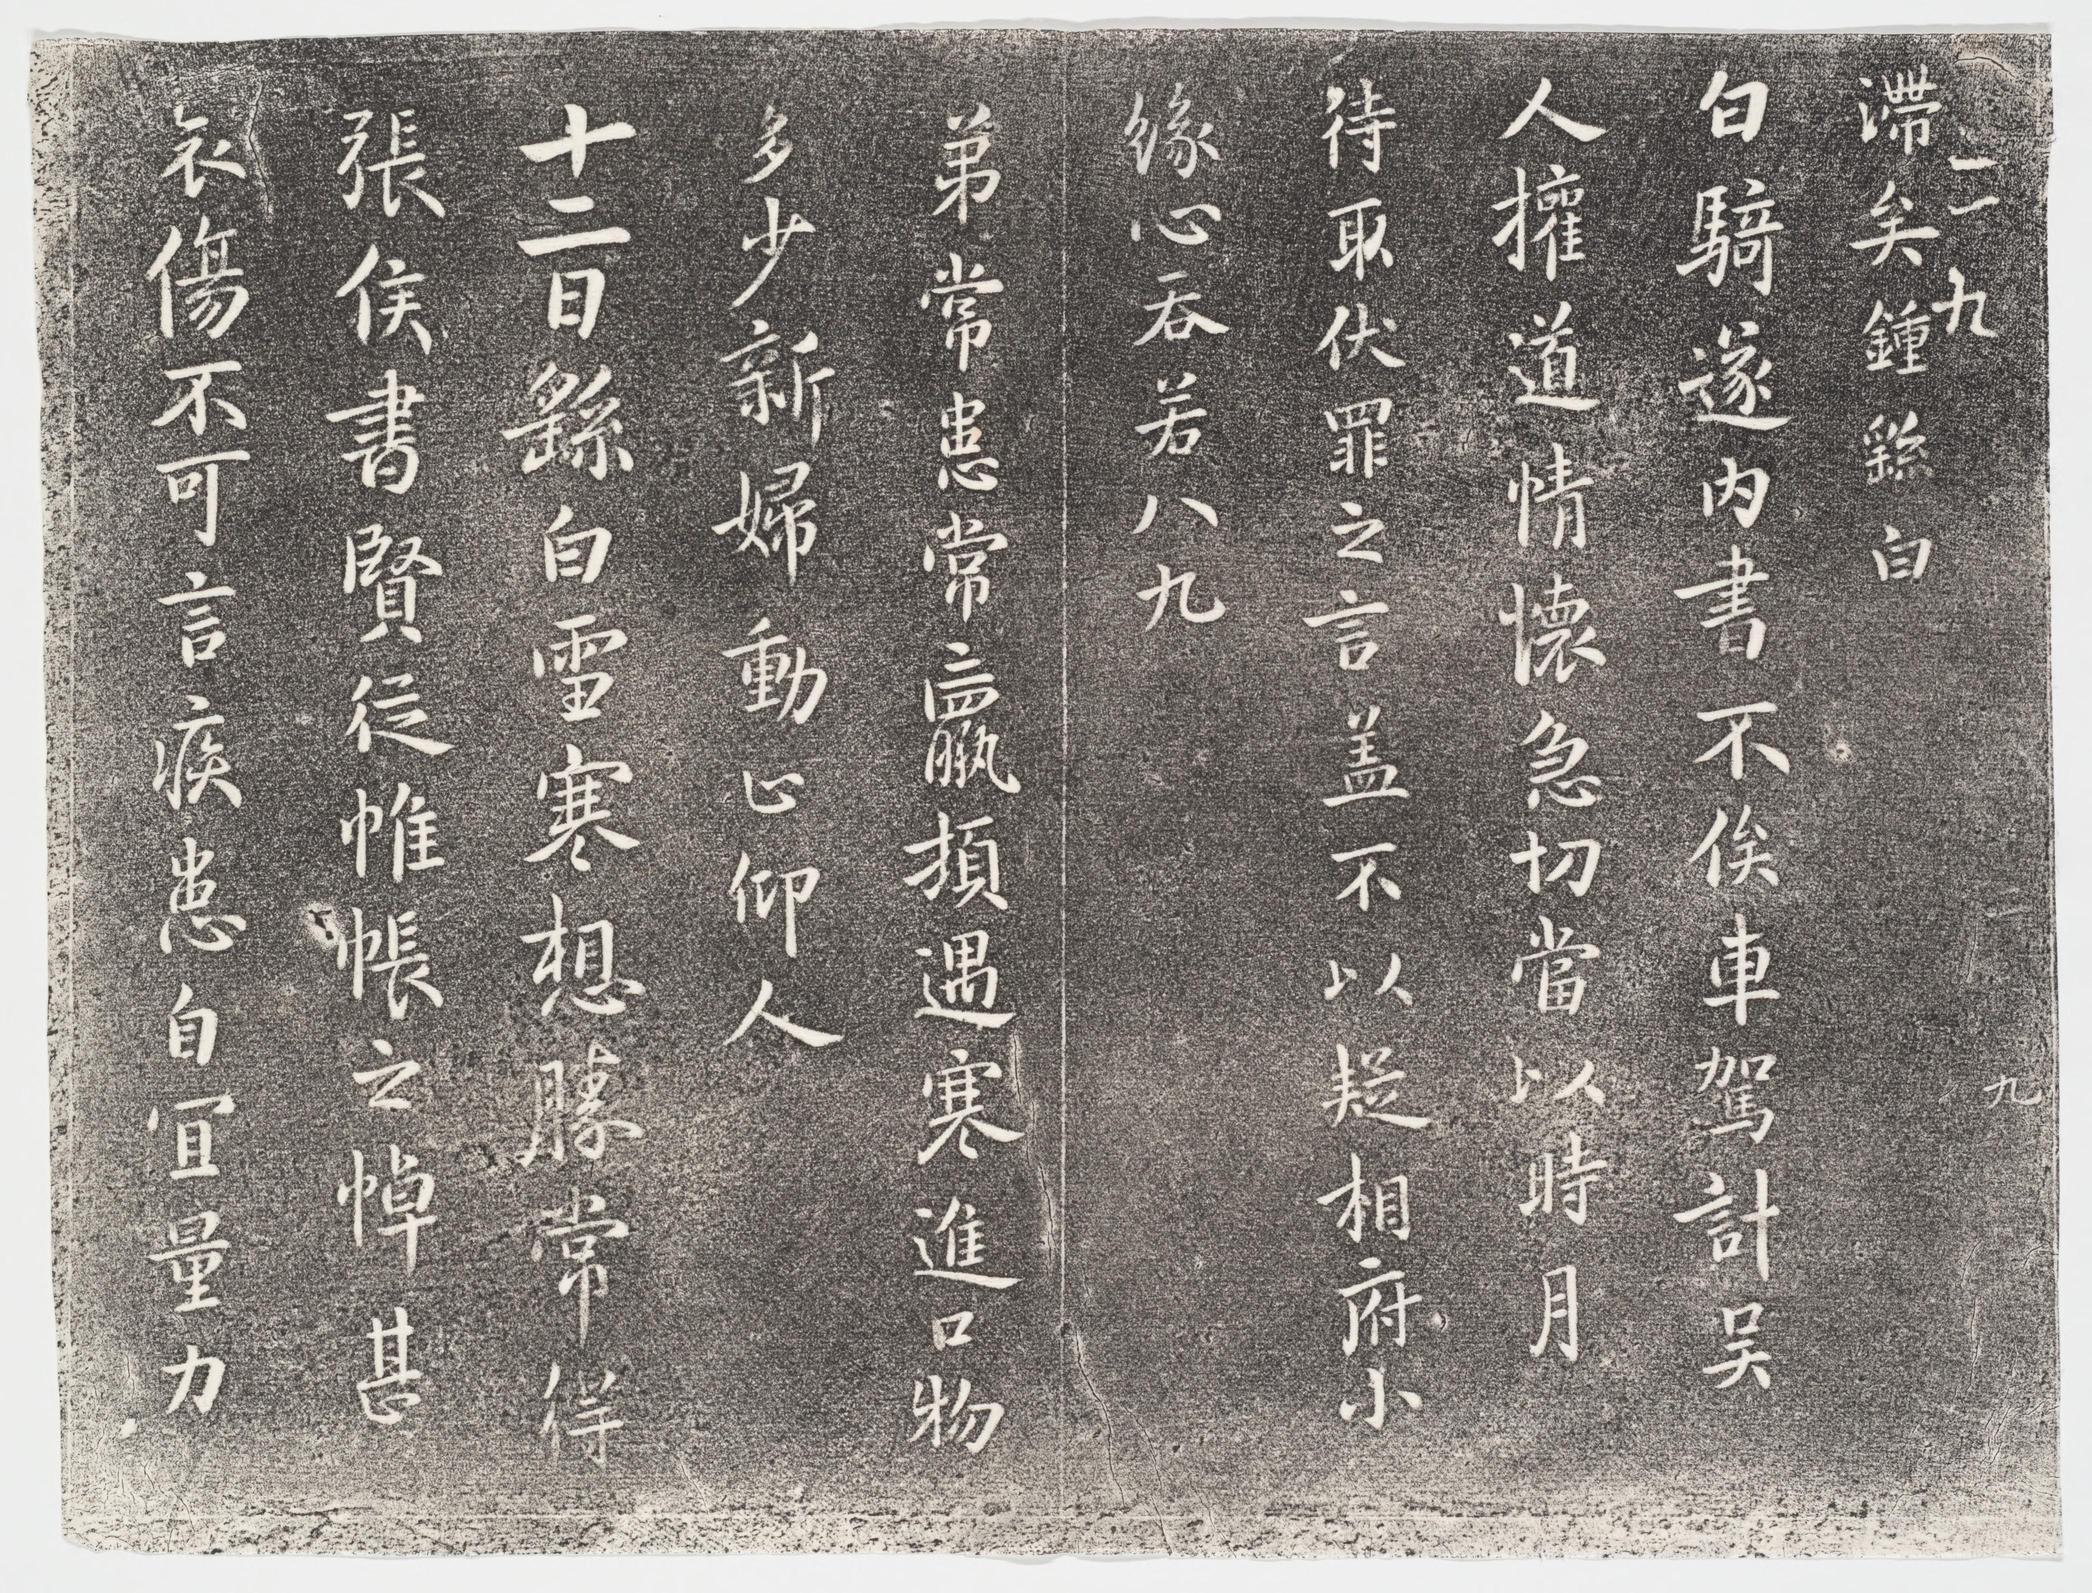 二 九
九
滯矣鍾繇白
白騎遂内書不俟車駕計吴
人權道情懐急切當以時月
待取伏罪之言盖不以疑相府小
緣心吞若八九
弟常患常羸頓遇寒進口物
多少新婦動止仰人
十二日繇白雪寒想勝常得
張侯書賢從帷帳之悼甚
哀傷不可言疾患自宜量力